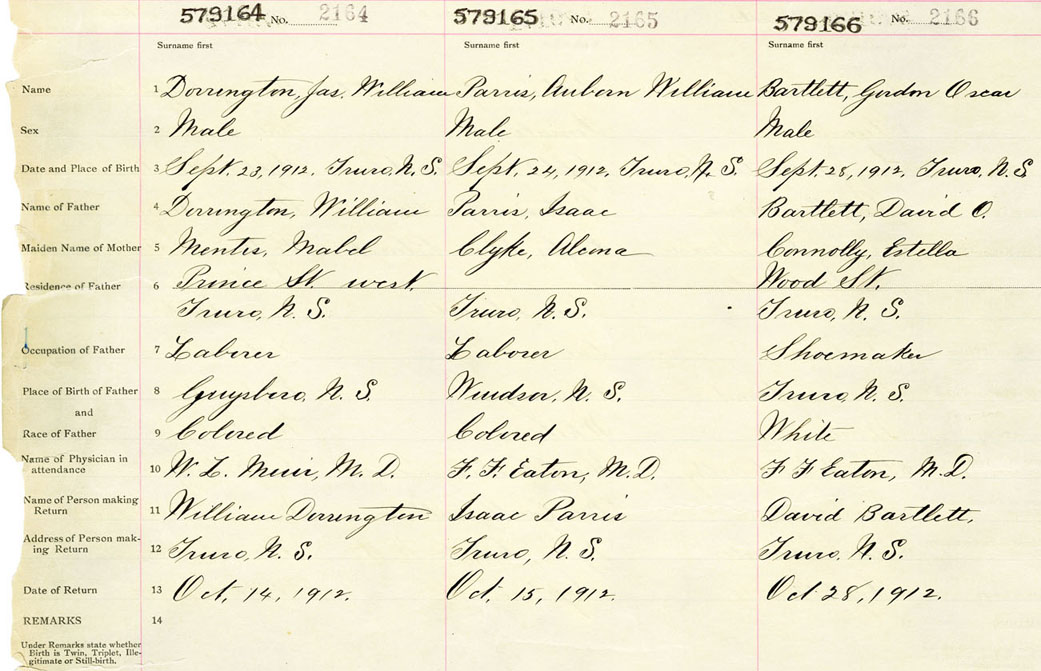 579164 No. 2164 579165 No. 2165 579166 No. 2166
Surname first Surname first Surname first
Name 1 Dorrington, Jas. William Parris, Auborn William Bartlett, Gordon Oscar
Sex 2 Male Male Male
Date and Place of Birth 3 Sept. 23, 1912, Truro, N. S. Sept. 24, 1912, Truro, N. S. Sept. 28, 1912, Truro, N. S
Name of Father 4 Dorrington, William Parris, Isaac Bartlett, David O.
Maiden Name of Mother 5 Mentis, Mabel Clyke, Alcena Connolly, Estella
Residence of Father 6 Prince St. west, Wood St.
Truro, N. S. Truro, N. S. Truro, N. S.
Occupation of Father 7 Laborer Laborer Shoemaker
Place of Birth of Father 8 Guysboro, N. S. Windsor, N. S. Truro, N. S.
and
Race of Father 9 Colored Colored White
Name of Physician in
attendance 10 W. L. Muir, M. D. F. F. Eaton, M. D. F F Eaton, M. D.
Name of Person making
Return 11 William Dorrington Isaac Parris David Bartlett,
Address of Person mak-
ing Return 12 Truro, N. S. Truro, N. S. Truro, N. S.
Date of Return 13 Oct. 14, 1912. Oct. 15, 1912. Oct 28, 1912.
REMARKS 14
Under Remarks state whether
Birth is Twin, Triplet, Ille-
gitimate or Still-birth.